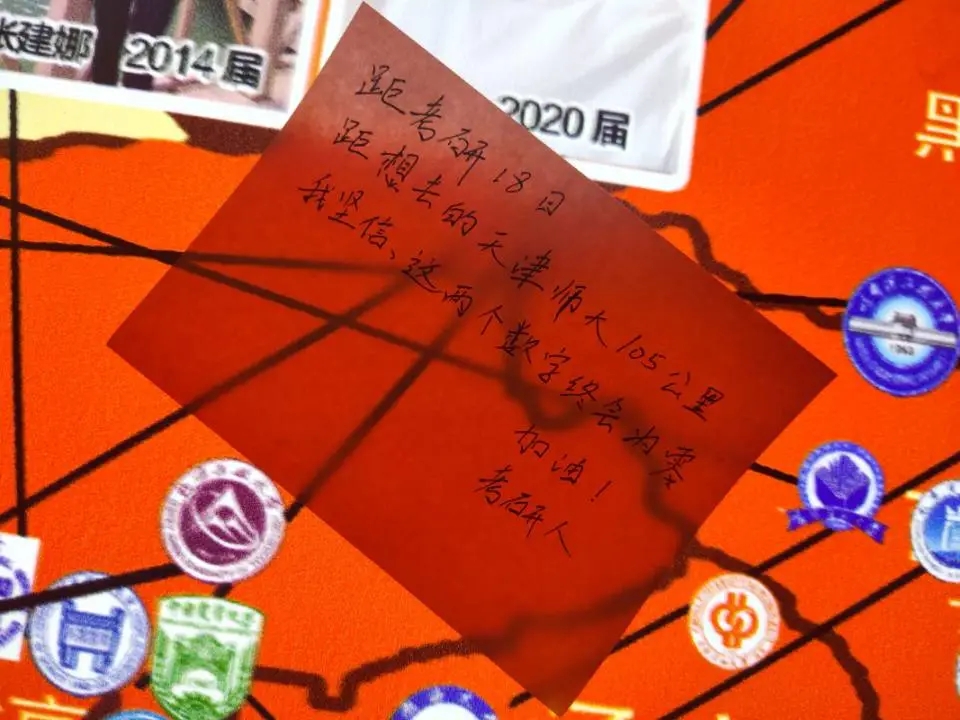 张建娜 2014届
2020届
距考研18日
距想去的天津师大105公里
我坚信、这两个数字终会为零
加油！
考研人